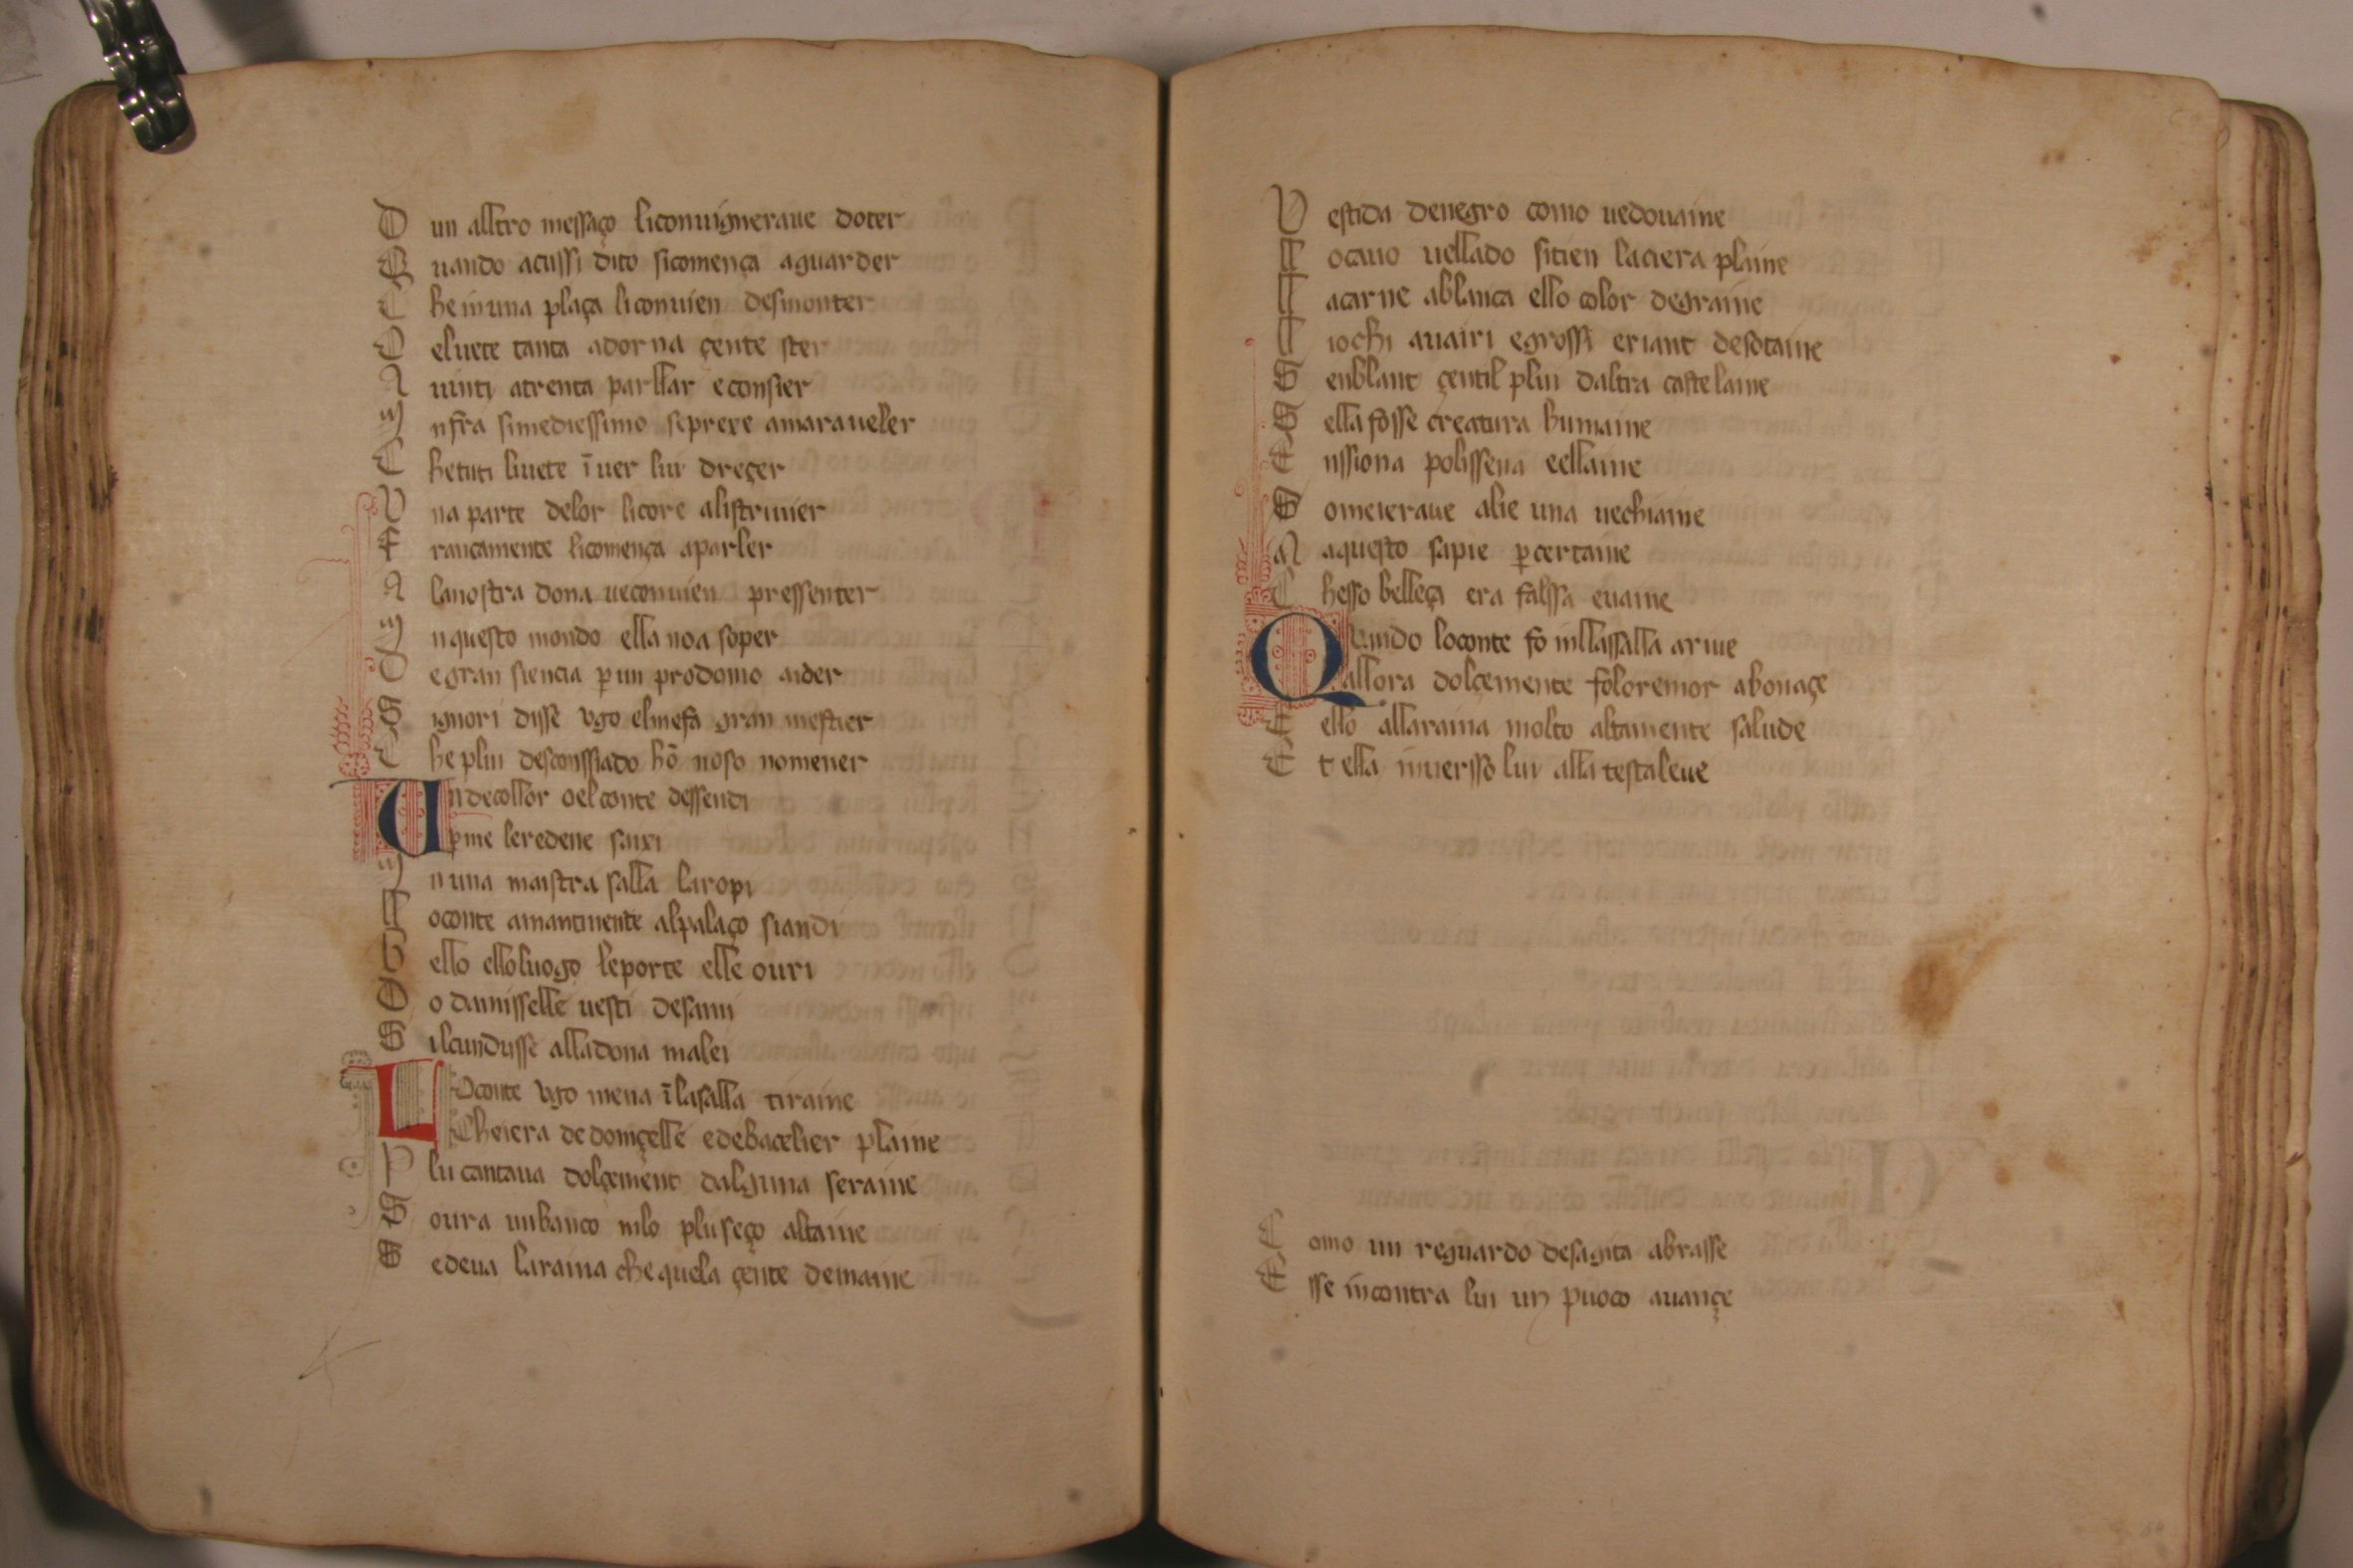 D un alltro messaço liconuigneraue doter
Q uando acussi dito sicomença aguarder
C he inuna plaça liconuien desmonter
O eluete tanta adorna çente ster
A uinti atrenta parllar econsier
I nfra simediessimo seprexe amaraueler
C hetuti liuete ĩuer lui dreçer
V na parte delor licore alistriuier
F rancamente licomença aparler
A lanostra dona ueconuien pressenter
I nquesto mondo ella noa soper
D egran siencia p un prodomo aider
S ignori disse vgo elmefa gran mestier
C he plui desconssiado hõ noso nomener
U ndecollor oel conte dessendi
pine leredene saixi
I n una maistra salla laropi
L oconte amantinente alpalaço siandi
B ello elloluogo leporte elle ouri
D o damisselle uesti desami
S ilcundusse alladona malei
L Oconte vgo mena ĩlasalla tiraine
Cheiera dedomçelle edebacelier plaine
P lu cantaua dolçement dalguna seraine
S oura unbanco inlo pluseço altaine
S edeua laraina chequela çente demaine
V estida denegro como uedouaine
L ocauo uellado sitien laciera plaine
L acarne ablanca ello color degraine
L iochi auairi egrossi eriant desotaine
S enblant çentil plui daltra castelaine
S ella fosse creatura humaine
E nssiona polissena eellaine
S omeieraue alie una uechiaine
M aquesto sapie p certaine
C hesso belleça era falssa euaine
Q uando loconte fo inllassalla ariue
allora dolçemente foloremor abonaçe
E ello allaraina molto altamente salude
E t ella inuersso lui alla testaleue
C omo un reguardo desagita abrasse
E sse incontra lui un puoco auançe